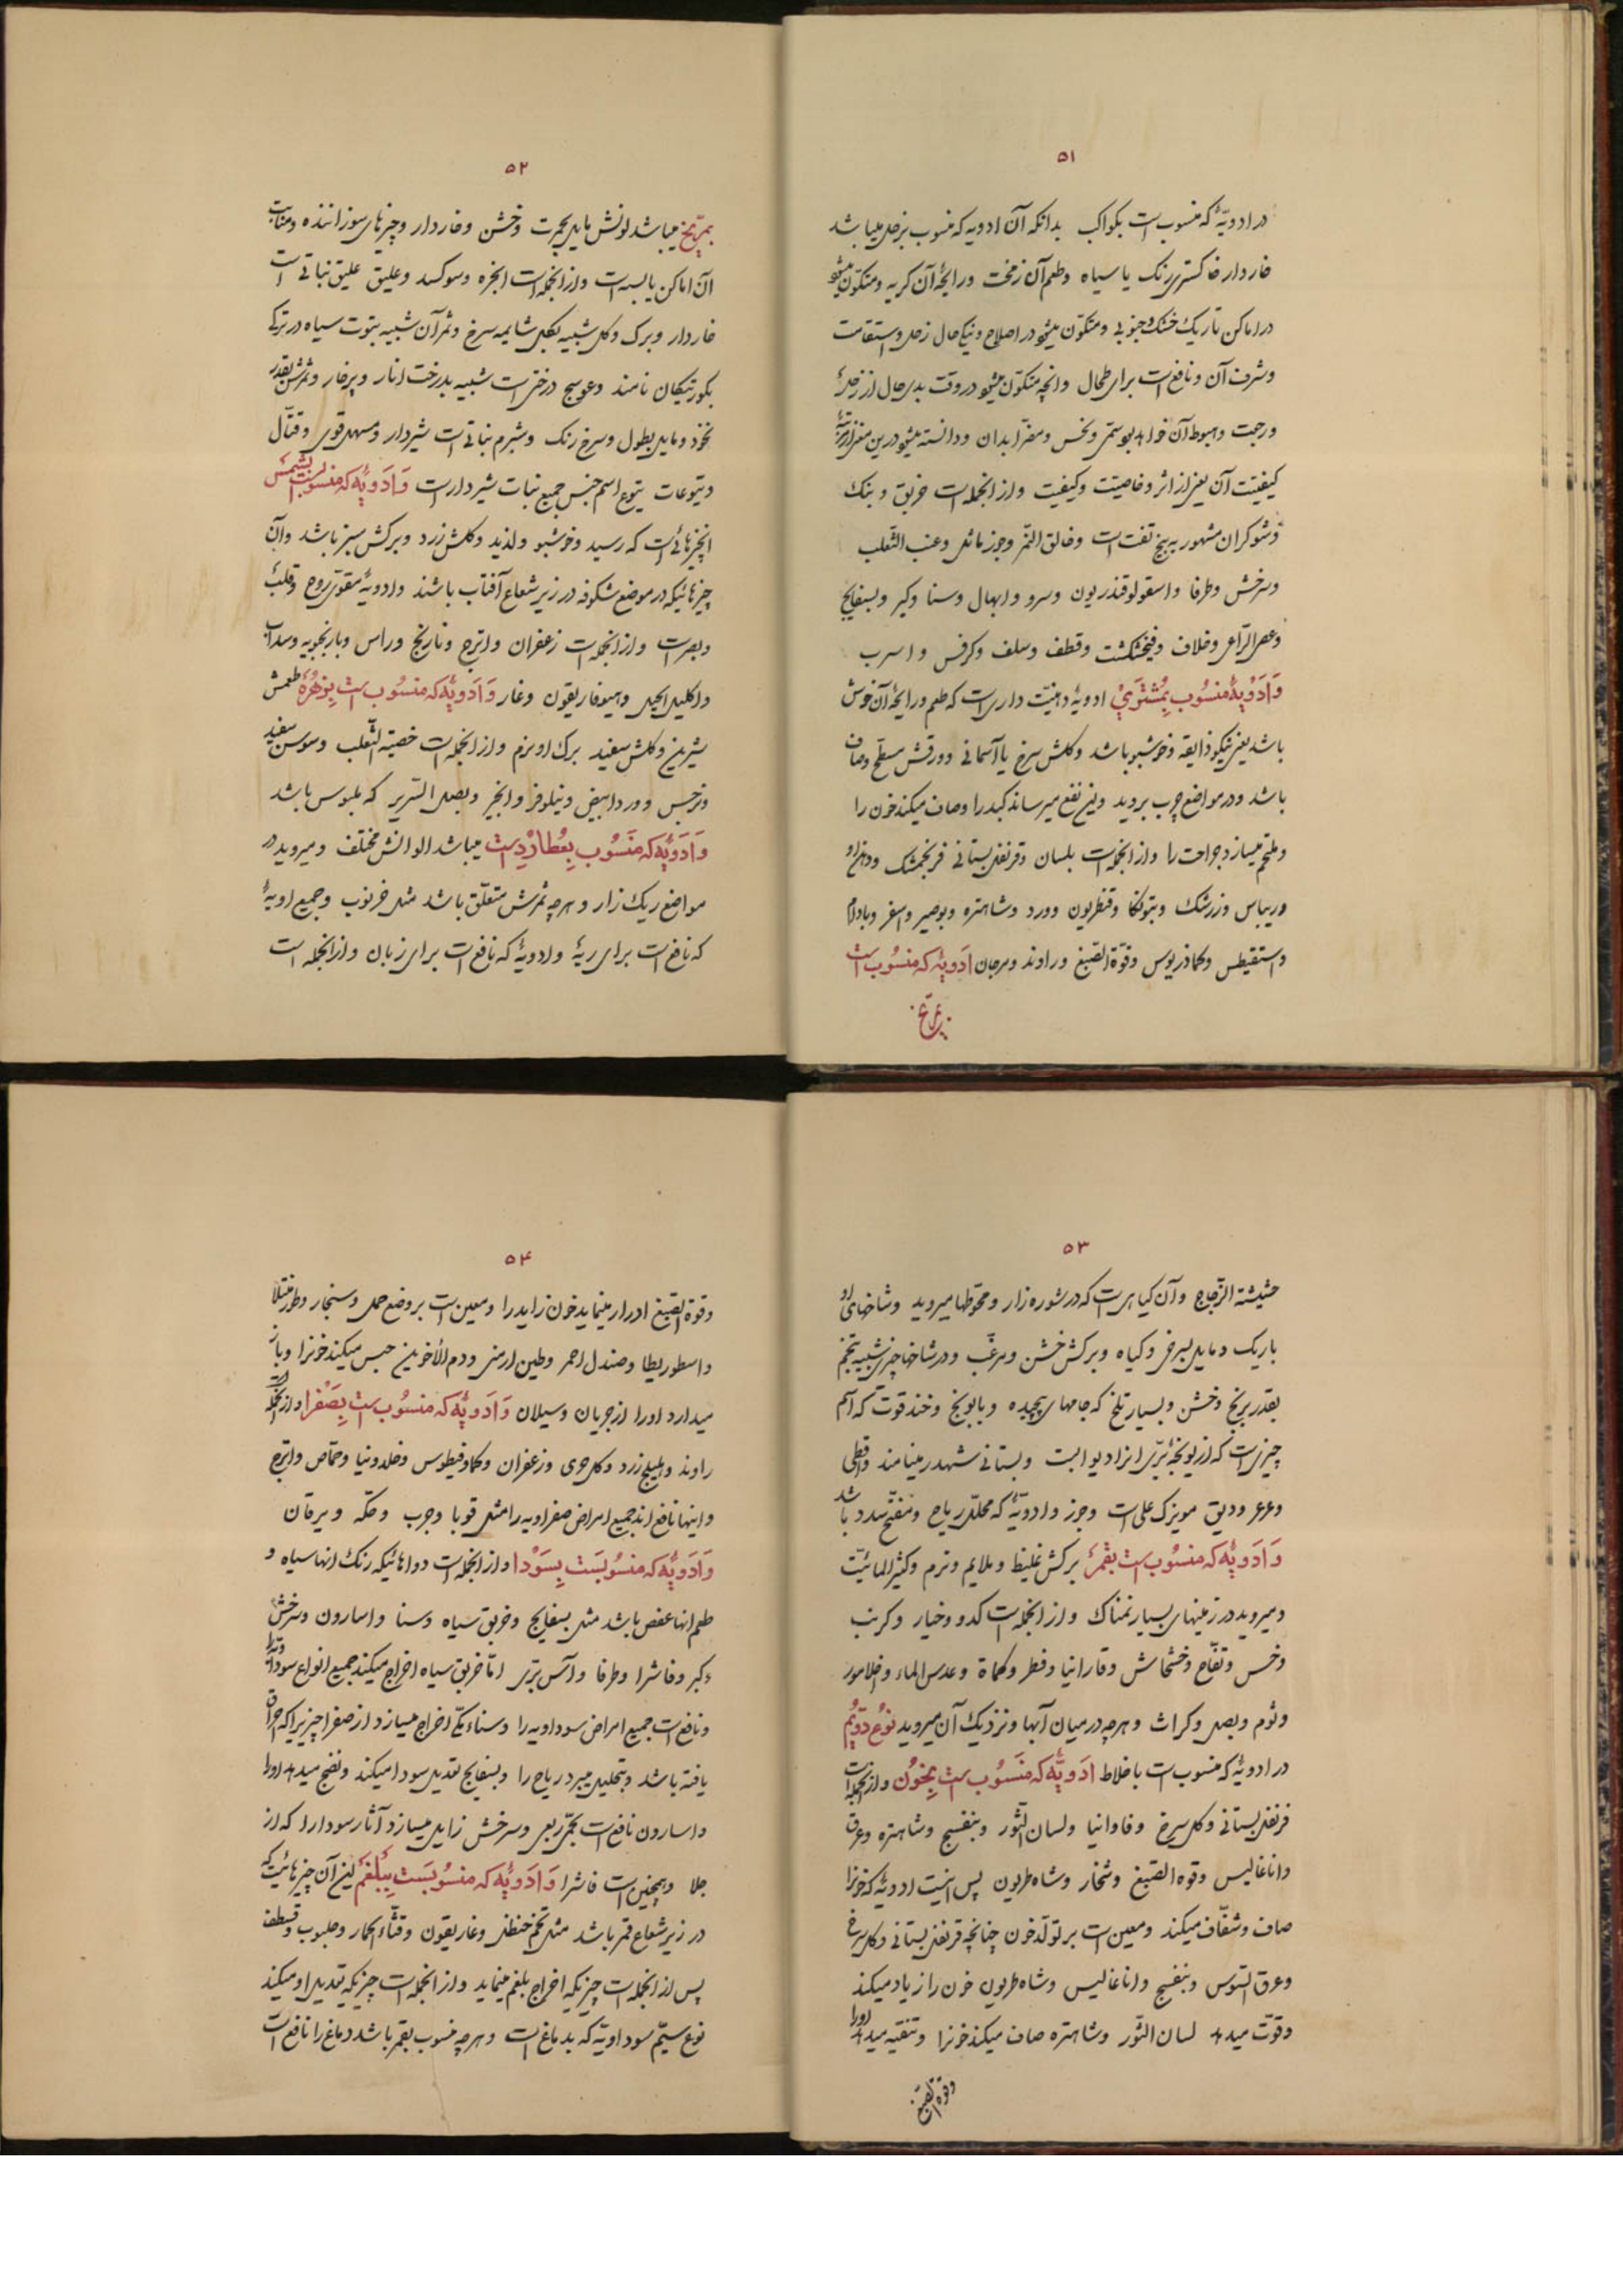 ۵۱
در ادویّهٔ که منسوب است بکواکب بدانکه آن ادویه که منسوب بزحل میباشد
خاردار خاکستری رنک یا سیاه وطعم آن زمخت ورایحهٔ آن کریه ومتکوّن میشو
در اماکن تاریک خشک وجنوبی ومتکوّن میشود در اصلاح ونیکی حال زحل واستقامت
وشرف آن ونافع است برای طحال وانچه متکوّن میشو در وقت بدی حال از زحل
ورجعت وهبوط آن خواهد بود سمّی ونحس ومضرّ ابدان ودانسته میشود درین
کیفیّت آن یعنی از اثر وخاصیّت وکیفیت واز انجمله است خربق وبنک
وشوکران مشهور به بیخ تفت است وخانق النّمر وجوز ماثل وعنب الثعلب
وسرخش وطرفا واسقولوقندریون وسرو وابهال وسنا وکبر وبسفایج
وعصی الرّاعی وخلاف وفنجنکشت وقطف وسلف وکرفس واسرب
وَادَوْیِهٔ منسُوب بِمُشتَرَیْ ادویهٔ دهنیّت داری است که طعم ورایحهٔ آن خوش
باشد یعنی نیکو ذایقه وخوشبو باشد وکلش سرخ یا آسمانی وورقش مسطّح وصاف
باشد ودر مواضع چرب بروید ونیز نفع میرساند کبد را وصاف میکند خون را
وملتحم میسازد جراحت را واز انجمله است بلسان وقرنفل بستانی فرنجمشک
وریباس وزرشک وبتونکا وقنطریون وورد وشاهتره وبوصیر واسفر وبادام
واسقنقیطس وکماذریوس وقوّة الصّبغ وراوند ومرجان ادَویهٔ که منسُوب است
بمرّیخ
۵۲
بمرّیخ میباشد لونش مایل بحمرت وخشن وخاردار وچیزهای سوزاننده ومنابت
آن اماکن یابسه است واز انجمله است انجره وسوکسد وعلیق علیق نباتی است
خاردار وبرک وکل شبیه بکل شایمه سرخ وثمر آن شبیه بتوت سیاه در ترکی
بکورتیکان نامند وعوسج درختی است شبیه بدرخت انار وپرخار وثمرش بقدر
نخود ومایل بطول وسرخ رنک وشبرم نباتی است شیردار ومسهل قوی وقتّال
ویتوعات یتوع اسم جنس جمیع نبات شیردار است وَادَویهٔ که منسوبست بشمسْ
انچیزهائی است که رسید وخوشبو ولذید وکلش زرد وبرکش سبز باشد وآن
چیزهائیکه در موضع شکوفه در زیر شعاع آفتاب باشند وادویهٔ مقوّی روح وقلب
وبصر است واز انجمله است زعفران واترج ونارنج وراس وبارنجبویه وسداب
واکلیل الجبل وهیوفاریقون وغار وَادَویهٔ که منسُوب است بِزُهُرَه طعمش
شیرین وکلش سفید برک او نرم واز انجمله است خصیته الثّعلب وسوسن سفید
ونرجس وورد ابیض ونیلوفر وانجیر وبصل السّریر که بلبوس باشد
وَادَوَیهٔ که مَنسُوب بِعُطارُدِ است میباشد الوانش مختلف ومیروید در
مواضع ریک زار وهرچه ثمرش متعلّق باشد مثل خرنوب وجمیع ادویهٔ
که نافع است برای ریهٔ وادویهٔ که نافع است برای زبان واز انجمله است
۵۳
حشیشة الزّجاج وآن کیاهی است که در شوره زار ومحوّطها میروید وشاخهای او
باریک ومایل بسرخی وکیاه وبرکش خشن ومزغّب ودر شاخها چیزی شبیه بتخم
بقدر برنج وخشن وبسیار تلخ که بجامها می پیچیده وبابونج وخندقوت که اسم
چیزی است که از یونجهٔ برّی انرا دیو ابت وبستانی شهدر مینامند واقطی
وعرعر ودبق مویزک علی است وجوز وادویّهٔ که محلّل ریاح ومفتّح سدد باشد
وَادَویهٔ که منسُوب است بقمرْ برکش غلیظ وملایم ونرم وکثیر المائیّت
ومیروید در زمینهای بسیار نمناک واز انجمله است کدو وخیار وکرنب
وخس وتفّاح وخشخاش وقارانیا وفطر وکماة وعدس الماء واخلامور
وثوم وبصل وکراث وهرچه در میان آبها ونزدیک آن میروید نوع دوّیُم
در ادویهٔ که منسوب است باخلاط ادَویَهٔ که مَنسُوب است بِخوُن واز انجمله است
قرنفل بستانی وکل سرخ وفاوانیا ولسان الثّور وبنفسج وشاهتره وعرق
واناغالیس وقوه الصّبغ وشنخار وشاه طریون پس اینست ادویهٔ که خونرا
صاف وشفّاف میکند ومعین است بر تولّد خون چنانچه قرنفل بستانی وکل سرخ
وعرق السّوس وبنفسج واناغالیس وشاه طریون خون را زیاد میکند
وقوّت میدهد لسان الثّور وشاهتره صاف میکند خونرا وتنقیه میدهد اورا
وقوة الصّبغ
۵۴
وقوة الصّبغ ادرار مینماید خون زاید را ومعین است بر وضع حمل وسنجار
واسطوریطا وصندل احمر وطین ارمنی ودم الأخوین حبس میکند خونرا وباز
میدارد اورا از جریان وسیلان وَادَویهٔ که منسُوب است بِصَفْرا واز انجمله است
راوند وهلیلج زرد وکل حوی وزعفران وکمادفیطوس وخلدونیا وحمّاص واترج
واینها نافع اند جمیع امراض صفراویه را مثل قوبا وجرب وحکّه ویرقان
وَادَویهٔ که منسُوبسَت بِسَوْدا واز انجمله است دواهائیکه رنک انها سیاه و
طعم انها عفص باشد مثل بسفایج وخربق سیاه وسنا واسارون وسرخش
وکبر وفاشرا وطرفا وآس برّی امّا خربق سیاه اخراج میکند جمیع انواع سودا را
ونافع است جمیع امراض سوداویه را وسناء مکّی اخراج میسازد از صفرا چیزیرا که احراق
یافته باشد وبتحلیل میبرد ریاح را وبسفایج تعدیل سودا میکند ونضج میدهد اورا
واسارون نافع است بحمّی ربعی وسرخش زایل میسازد آثار سودا را که از
جلا وهمچنین است فاشرا وَادَویهٔ که منسُوبسَت بِبَلغمْ یعنی آن چیزهائیست که
در زیر شعاع قمر باشد مثل تخم حنظل وغاریقون وقثّاء الحمار وحلبوب وقسطف
پس از انجمله است چیزیکه اخراج بلغم مینماید واز انجمله است چیزیکه تعدیل او میکند
نوع سیّم سوداویّه که بدماغ است وهرچه منسوب بقمر باشد دماغ را نافع است